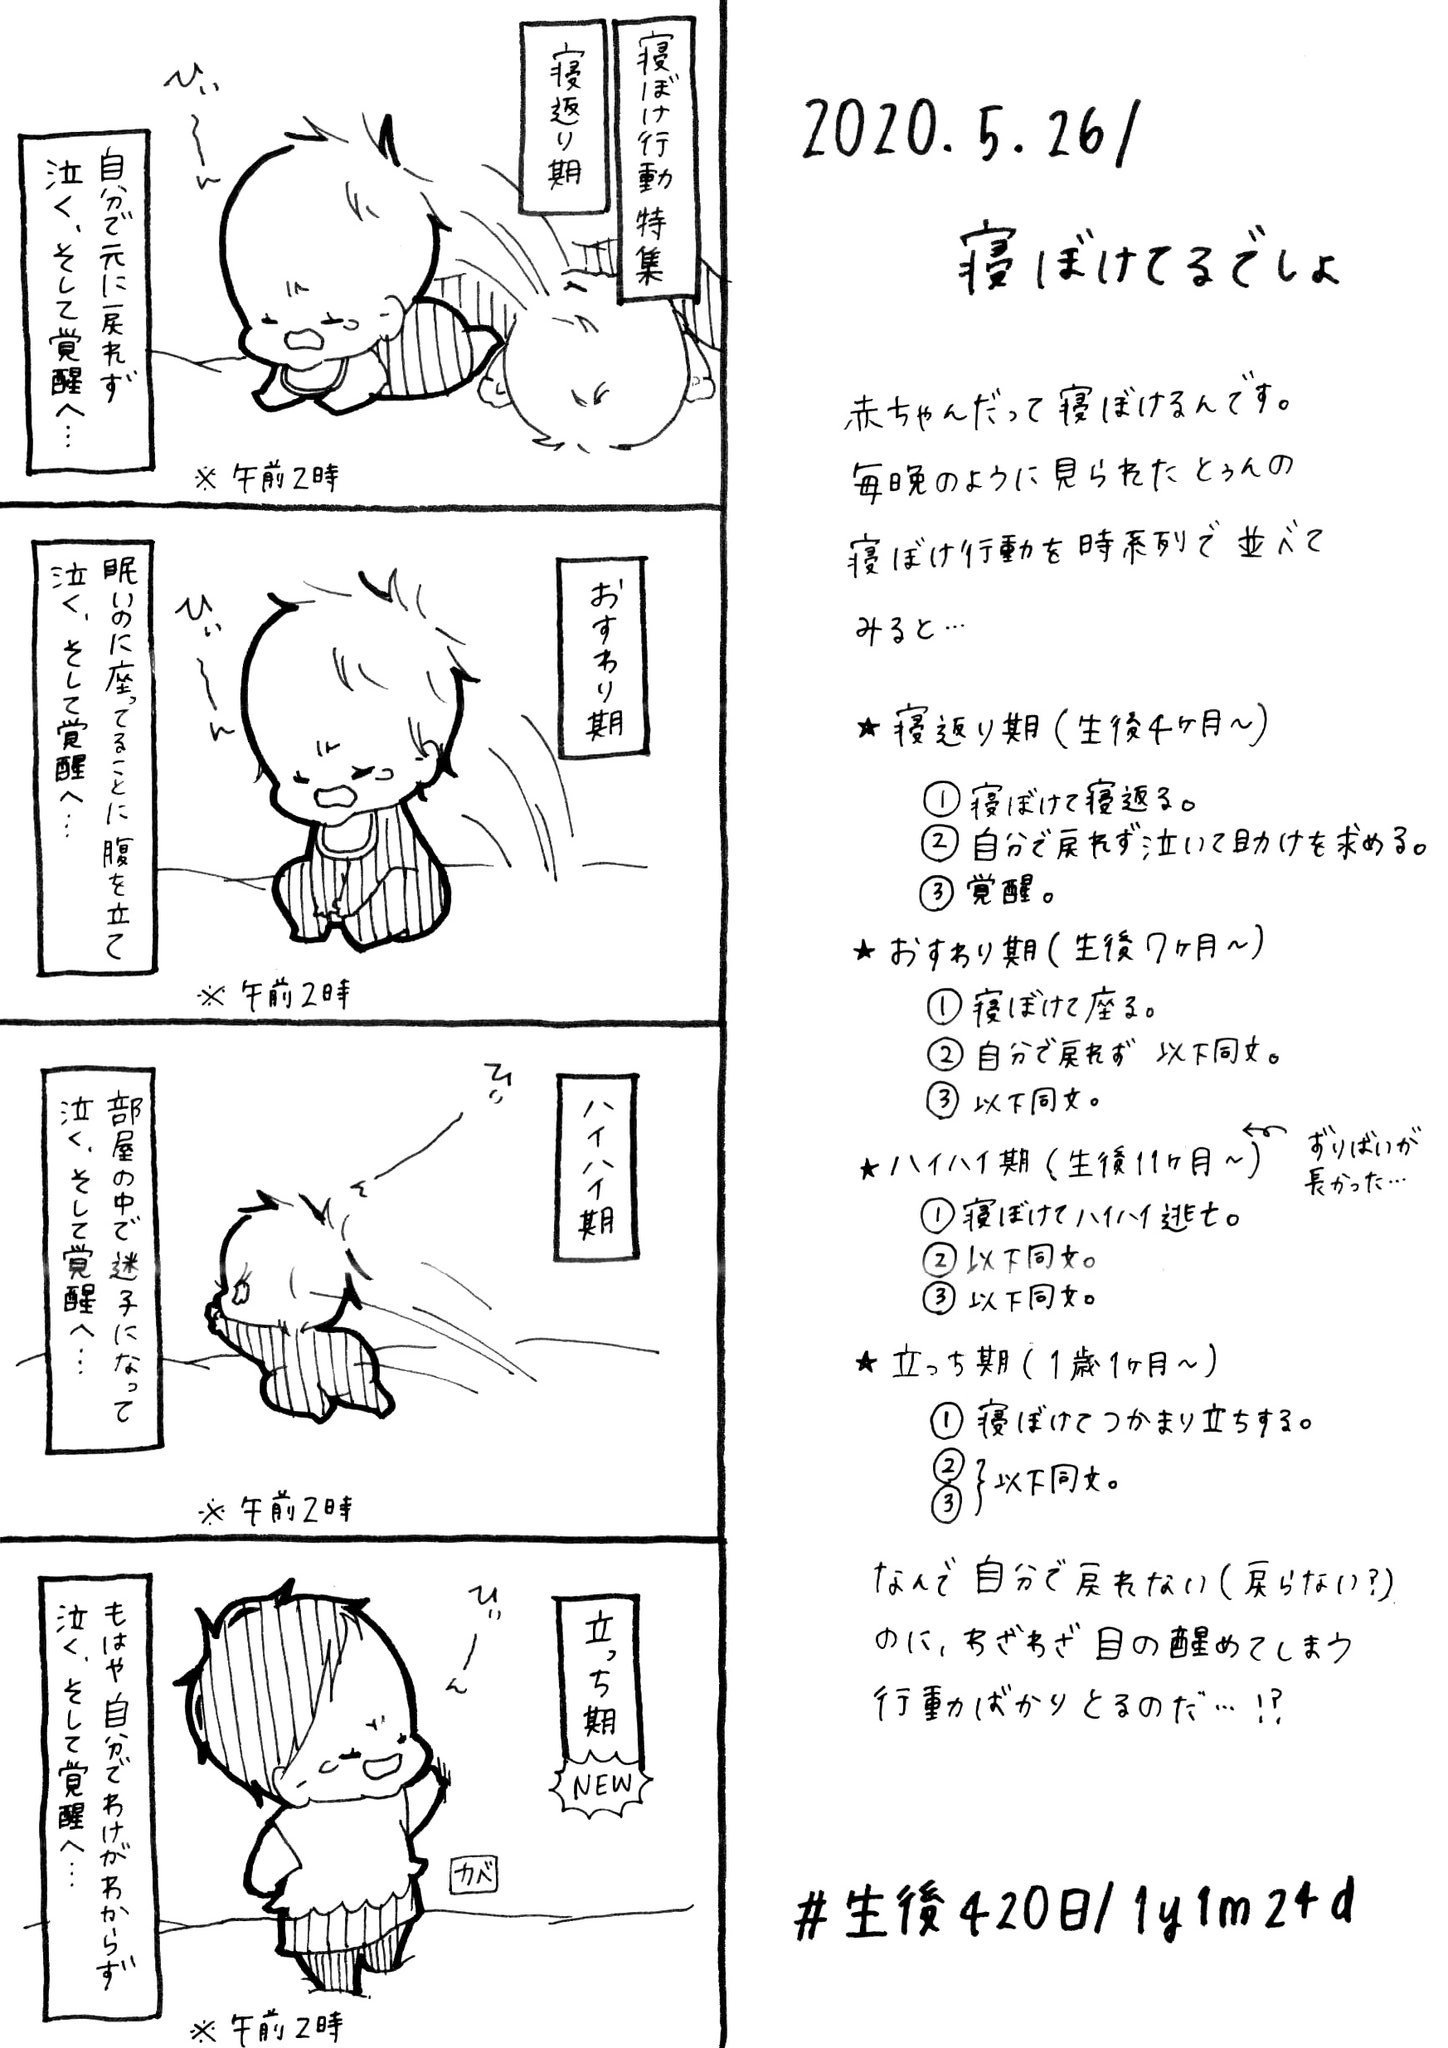 寝ぼけ行動 特集
寝返り期
ひぃ〜ん
自分で元に戻れず
泣く、そして覚醒へ…
※午前2時
おすわり期
ひぃ〜ん
眠いのに座ってることに腹を立て
泣く、そして覚醒へ…
※午前2時
ハイハイ期
ひぃ〜ん
部屋の中で迷子になって
泣く、そして覚醒へ…
※午前2時
立っち期
NEW
ひぃ〜ん
カベ
もはや自分でわけがわからず
泣く、そして覚醒へ…
※午前2時
2020.5.26/
寝ぼけてるでしょ
赤ちゃんだって寝ぼけるんです。
毎晩のように見られたとぅんの
寝ぼけ行動を時系列で並べて
みると…
★寝返り期(生後4ヶ月〜)
①寝ぼけて寝返る。
②自分で戻れず泣いて助けを求める。
③覚醒。
★おすわり期(生後7ヶ月〜)
①寝ぼけて座る。
②自分で戻れず 以下同文。
③以下同文。
★ハイハイ期(生後11ヶ月〜)
ずりばいが
長かった…
①寝ぼけてハイハイ逃亡。
②以下同文。
③以下同文。
★立っち期(1歳1ヶ月〜)
①寝ぼけてつかまり立ちする。
②
③}以下同文。
なんで自分で戻れない(戻らない?)
のに、わざわざ目の醒めてしまう
行動ばかりとるのだ…!?
#生後420日/1y1m24d